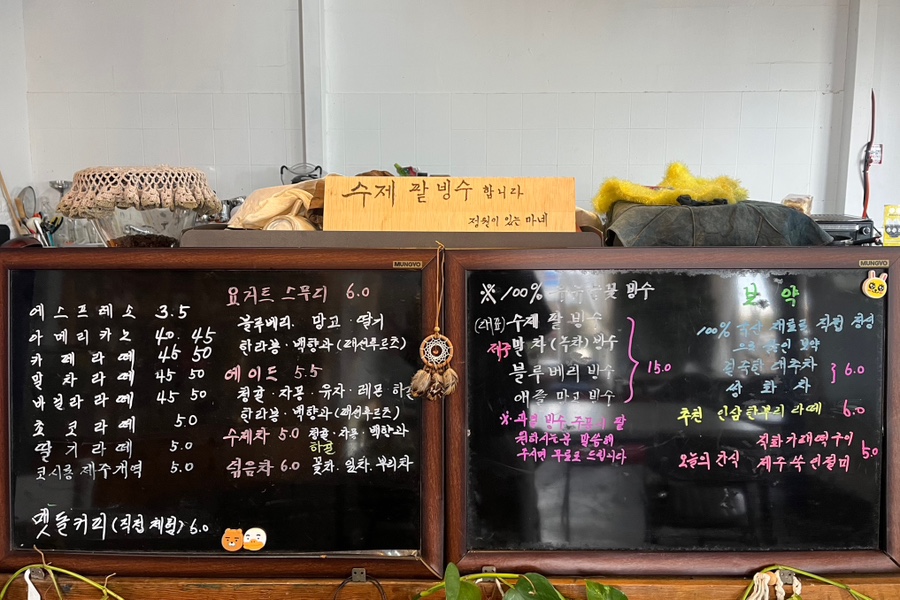 수제 팥빙수 합니다
정원이 있는 마네
MUNGYO
에스프레소 3.5
아메리카노 40. 45
카페라떼 45 50
말차라떼 45 50
바닐라라떼 45 50
초코라떼 5.0
딸기라떼 5.0
코시롱 제주개역 5.0
맷돌커피 (직접 체험) 6.0
요거트 스무디 6.0
블루베리. 망고. 딸기
한라봉. 백향과 (패션후르츠)
에이드 5.5
청귤. 자몽. 유자. 레몬
한라봉. 백향과 (패션후르츠)
수제차 5.0 청귤. 자몽. 백향과
하귤
덖음차 6.0 꽃차. 잎차. 뿌리차
MUNGYO
※ 100% 빙수
(대표) 수제 팥 빙수
제주 말차 (녹차) 빙수
블루베리 빙수
애플 망고 빙수
15.0
※ 과일빙수 주문시 팥
원하시는 분 말씀해
주시면 무료로 드립니다
보약
100% 국산 재료로 직접 정성
으로 달인 보약
진중한 대추차
쌍화차
6.0
추천 인삼한뿌리 라떼 6.0
직화가래떡구이
오늘의 간식 제주 쑥 인절미
5.0